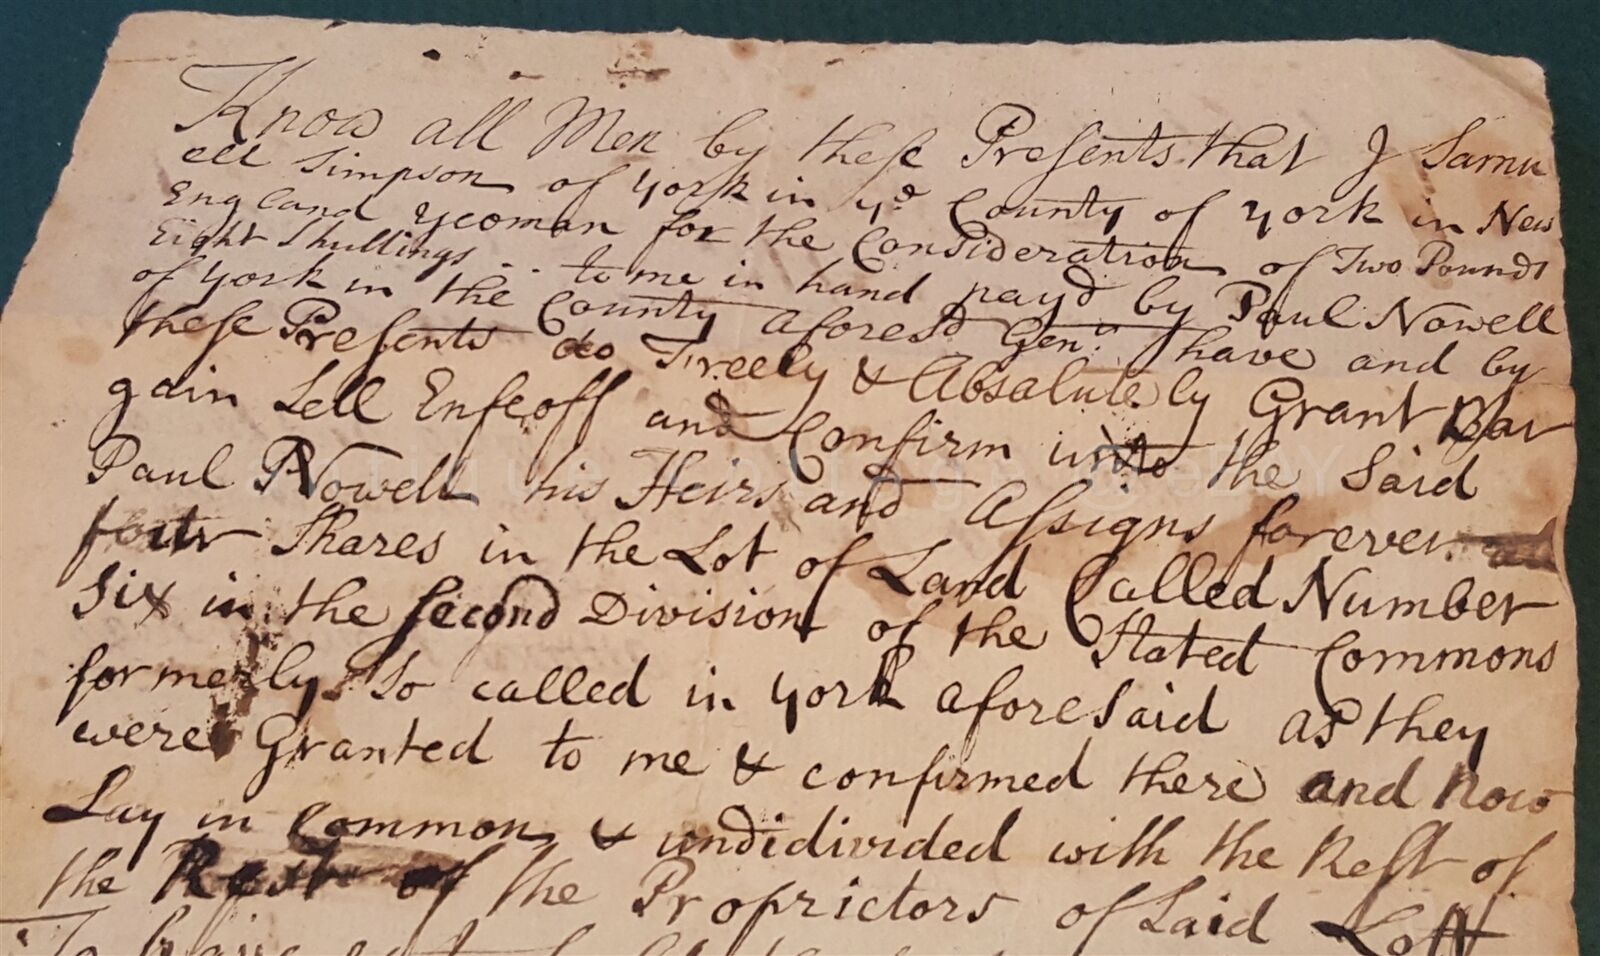 Know all Men by these Presents that I Samu
ell Simpson of York in ye County of York in New
England yeoman for the Consideration of Two Pounds
Eight Shullings . . to me in hand payd by Paul Nowell
of York in the County aforesd Gen.n have and by
these Presents do Freely & Absolutely Grant Bar
gain Sell Enfeoff and Confirm unto the Said
Paul Nowell his Heirs and Assigns forever
four Shares in the Lot of Land Called Number
Six in the Second Division of the Stated Commons
formerly So called in York aforesaid as they
were Granted to me & confirmed there and now
Lay in Common & undidivided with the Rest of
the Rest of the Proprictors of Said Lott
To have